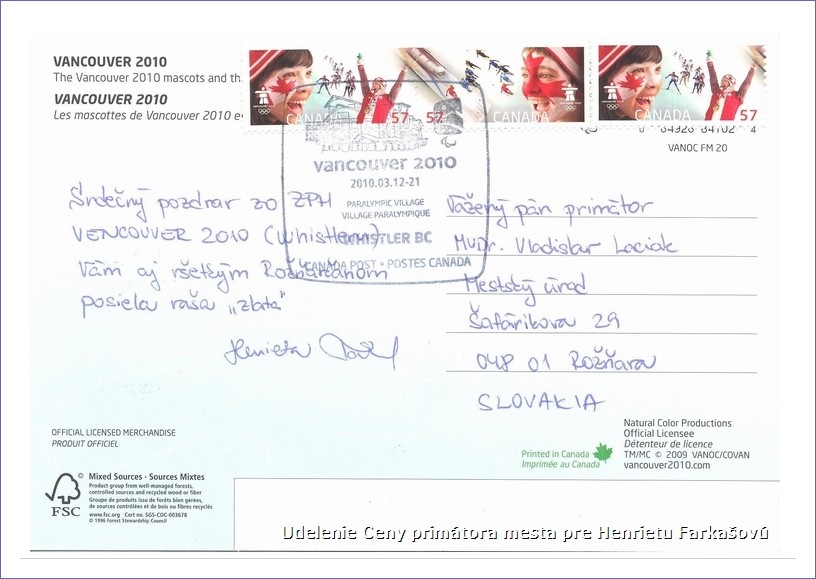 VANCOUVER 2010
The Vancouver 2010 mascots and th
VANCOUVER 2010
Les mascottes de Vancouver 2010 e
CANADA 57
57
CANADA
CANADA 57
64926 84102 4
VANOC FM 20
vancouver 2010
2010.03.12-21
PARALYMPIC VILLAGE
VILLAGE PARALYMPIQUE
WHISTLER BC
CANADA POST • POSTES CANADA
Srdečný pozdrav zo ZPH
VENCOUVER 2010 (Whistlern)
Vám aj všetkým Rožňavčanom
posiela vaša „zlatá"
Henrieta
Vážený pán primátor
MUDr. Vladislav Laciak
Mestský úrad
Šafárikova 29
048 01 Rožňava
SLOVAKIA
OFFICIAL LICENSED MERCHANDISE
PRODUIT OFFICIEL
FSC
Mixed Sources · Sources Mixtes
Product group from well-managed forests,
controlled sources and recycled wood or fiber
Groupe de produits issu de forêts bien gérées,
de sources contrôlées et de bois ou fibres recyclés
www.fsc.org Cert no. SGS-COC-003678
© 1996 Forest Stewardship Council
Printed in Canada
Imprimée au Canada
Natural Color Productions
Official Licensee
Détenteur de licence
TM/MC © 2009 VANOC/COVAN
vancouver2010.com
Udelenie Ceny primátora mesta pre Henrietu Farkašovú